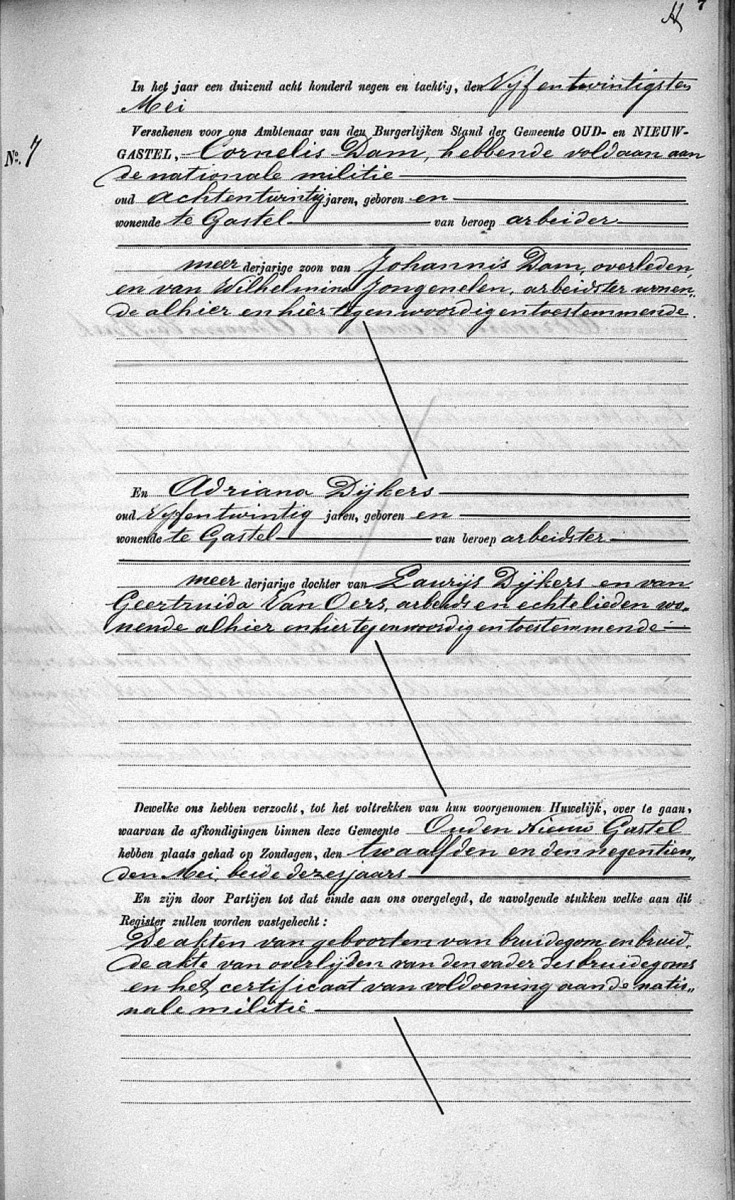 7
In het jaar een duizend acht honderd negen en tachtig, den Vijf en twintigsten
Mei
Verschenen voor ons Ambtenaar van den Burgerlijken Stand der Gemeente OUD- en NIEUW-
No. 7
GASTEL, Cornelis Dam, hebbende voldaan aan
de nationale militie
oud achtentwintig jaren, geboren en
wonende te Gastel van beroep arbeider
meer derjarige zoon van Johannis Dam, overleden,
en van Wilhelmina Jongenelen, arbeidster wonen„
de alhier en hier tegenwoordig en toestemmende.
En Adriana Dijkers
oud Vijfentwintig jaren, geboren en
wonende te Gastel van beroep arbeidster
meer derjarige dochter van Laurijs Dijkers en van
Geertruida Van Oers, arbeids en echtelieden wo„
nende alhier en hier tegenwoordig en toestemmende
Dewelke ons hebben verzocht, tot het voltrekken van hun voorgenomen Huwelijk, over te gaan,
waarvan de afkondigingen binnen deze Gemeente Oud en Nieuw Gastel
hebben plaats gehad op Zondagen, den twaalfden en den negentien„
den Mei, beide dezes jaars
En zijn door Partijen tot dat einde aan ons overgelegd, de navolgende stukken welke aan dit
Register zullen worden vastgehecht:
De akten van geboorten van bruidegom en bruid,
de akte van overlijden van den vader des bruidegoms
en het certificaat van voldoening aan de natio„
nale militie